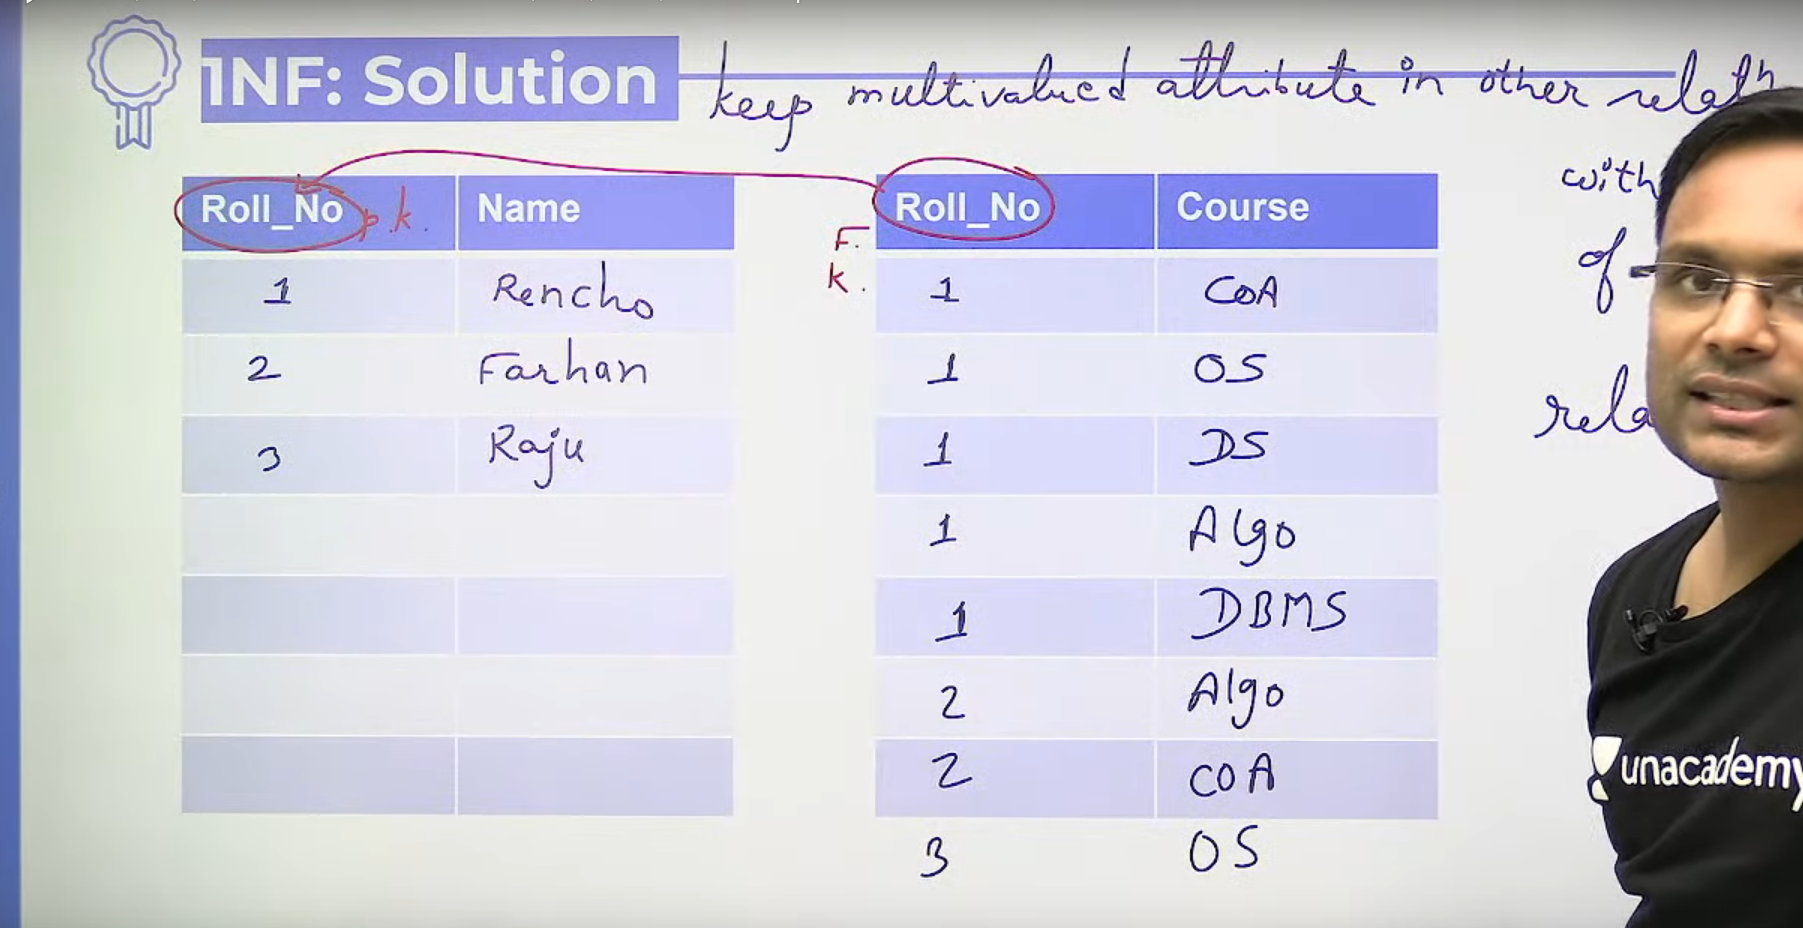 1NF: Solution
keep multivalued attribute in other
with
of
Roll_No p.k. Name
1 Rencho
2 Farhan
3 Raju
F.
K.
Roll_No Course
1 COA
1 OS
1 DS
1 Algo
1 DBMS
2 Algo
2 COA
3 OS
unacademy